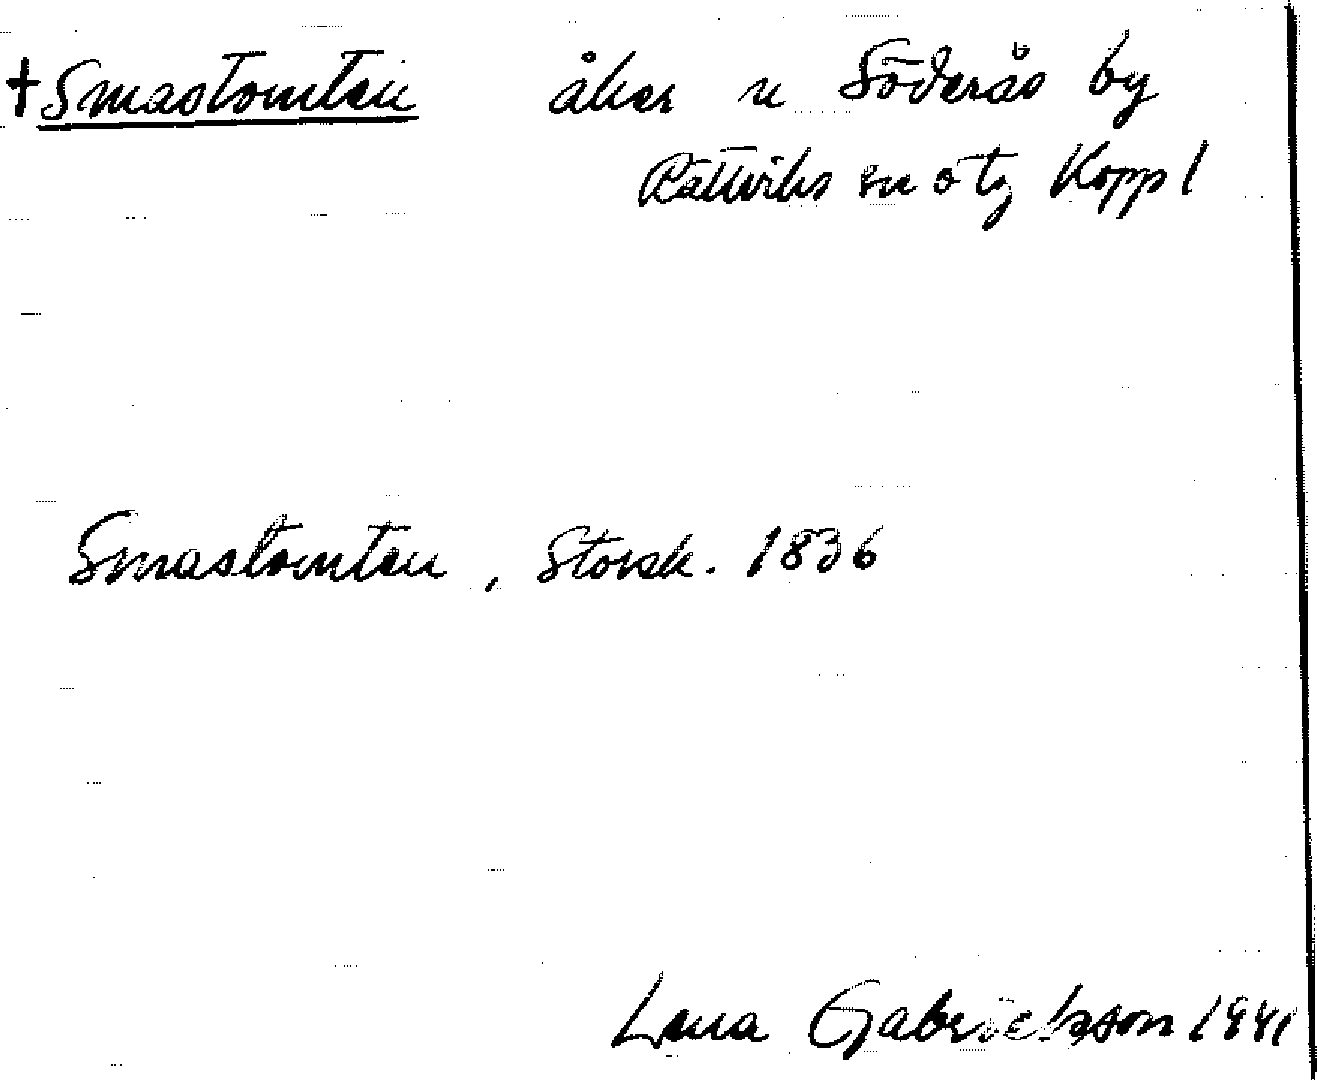 †Smastomten åker u Söderås by
Rättviks sn o tg Kopp l
Smastomten, Storsk. 1836
Lena Gabrielsson 1941